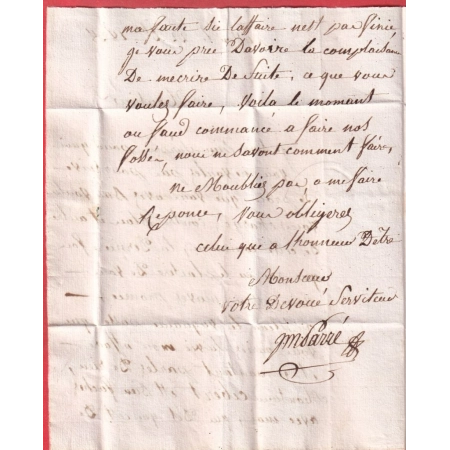 ma faute sie laffaire nest pas finie
je vous prée Davoire la complaisance
De mecrire De Suite, ce que vous
voules faire, Voila le moment
ou faud commancé a faire nos
fossée, nous ne Savont comment faire,
ne Moublies pas a me faire
Reponce, Vous obligeres
celui que a lhonneur Dêtre
Monsieur
votre Devoué Serviteur